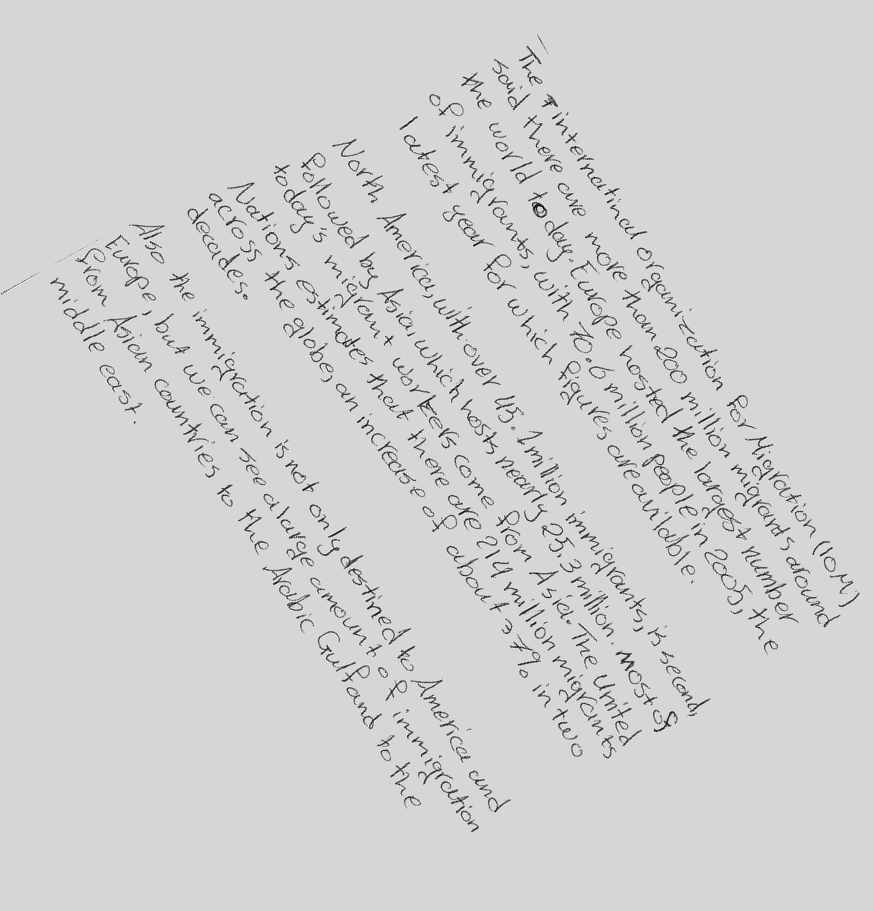 The internatinal organization for Migration (IOM)
said there are more than 200 million migrants around
the world today. Europe hosted the largest number
of immigrants, with 70.6 million people in 2005, the
latest year for which figures are available.
North America, with over 45.1 million immigrants, is second,
followed by Asia, which hosts nearly 25.3 million. Most of
today's migrant workers come from Asia. The United
Nations estimates that there are 214 million migrants
across the globe, an increase of about 37% in two
decades.
Also the immigration is not only destined to America and
Europe, but we can see a large amount of immigration
from Asian countries to the Arabic Gulf and to the
middle east.